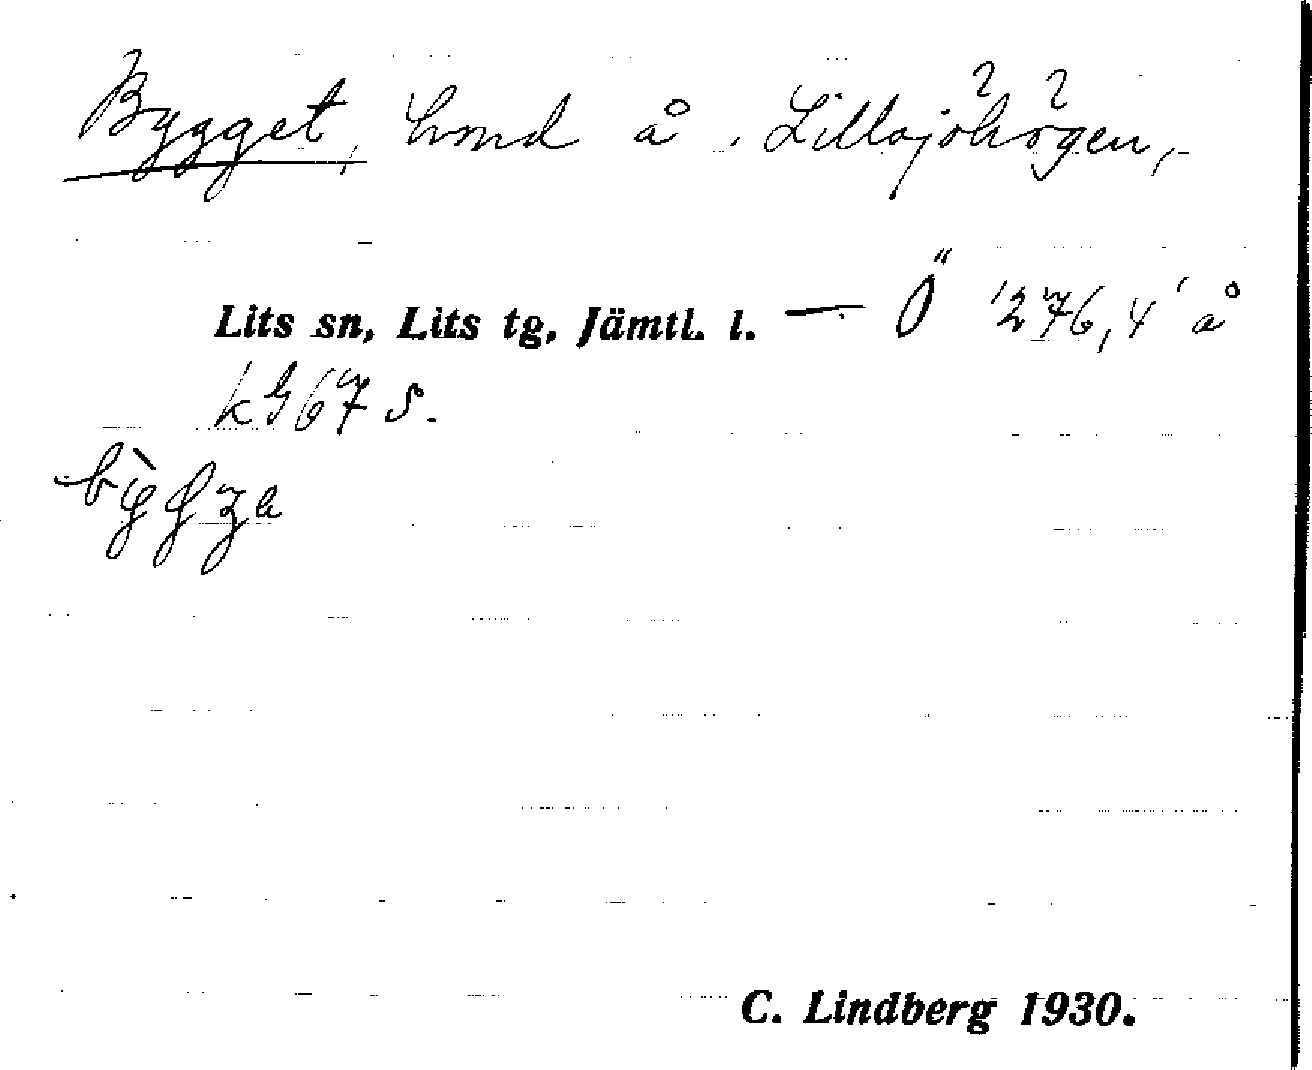 Bygget, hmd å Lillsjöhögen,
Lits sn, Lits tg, Jämtl. l. — Ö 276,4 å
k G 67 S.
C. Lindberg 1930.